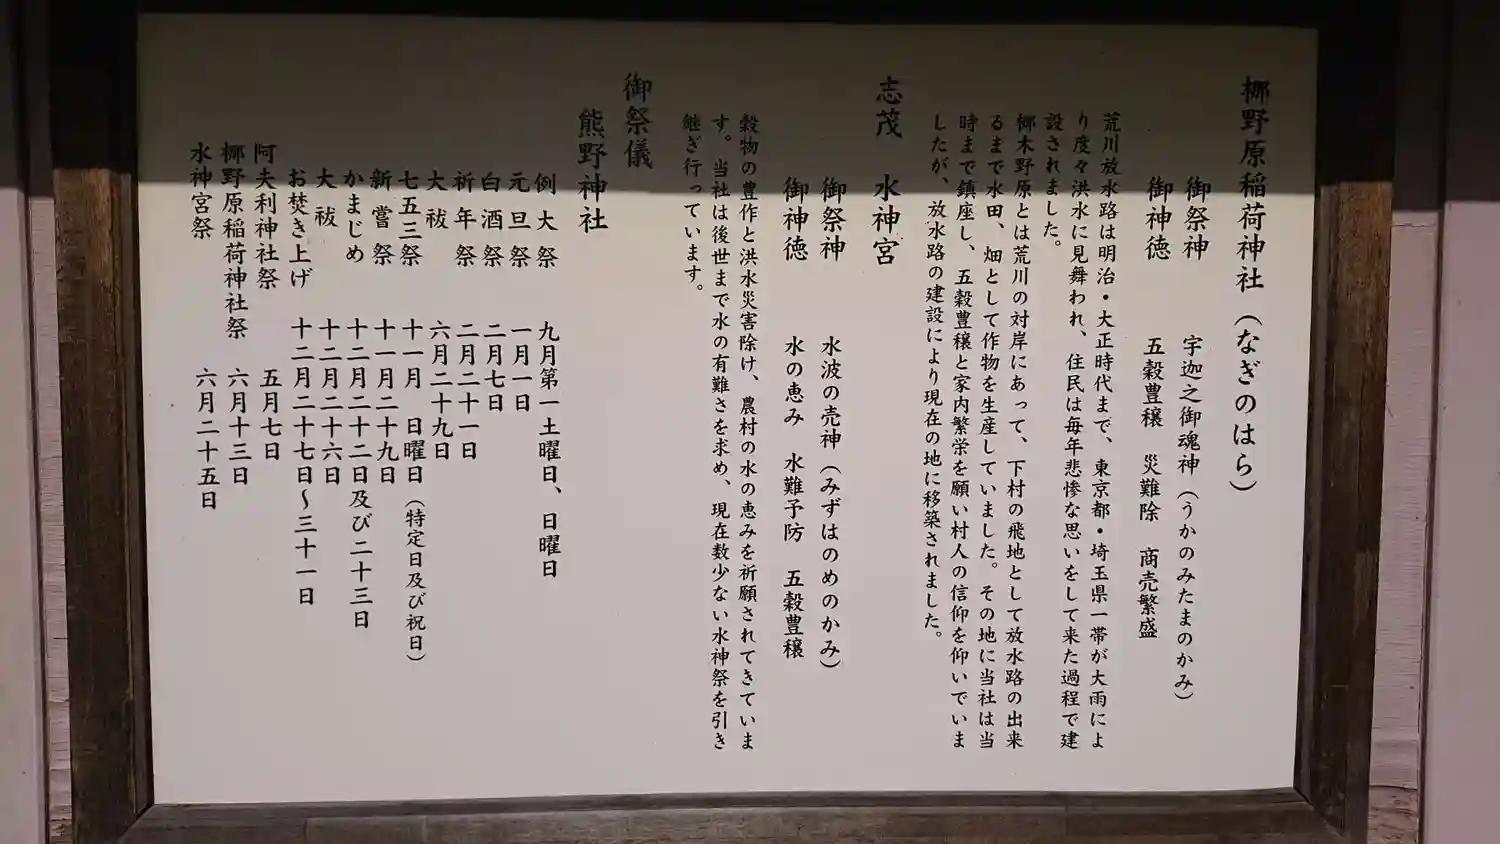 梛野原稲荷神社（なぎのはら）
御祭神　宇迦之御魂神（うかのみたまのかみ）
御神徳　五穀豊穣　災難除　商売繁盛
荒川放水路は明治・大正時代まで、東京都・埼玉県一帯が大雨によ
り度々洪水に見舞われ、住民は毎年悲惨な思いをして来た過程で建
設されました。
梛木野原とは荒川の対岸にあって、下村の飛地として放水路の出来
るまで水田、畑として作物を生産していました。その地に当社は当
時まで鎮座し、五穀豊穣と家内繁栄を願い村人の信仰を仰いでいま
したが、放水路の建設により現在の地に移築されました。
志茂　水神宮
御祭神　水波の売神（みずはのめのかみ）
御神徳　水の恵み　水難予防　五穀豊穣
穀物の豊作と洪水災害除け、農村の水の恵みを祈願されてきていま
す。当社は後世まで水の有難さを求め、現在数少ない水神祭を引き
継ぎ行っています。
御祭儀
熊野神社
例大祭　九月第一土曜日、日曜日
元旦祭　一月一日
白酒祭　二月七日
祈年祭　二月二十一日
大祓　六月二十九日
七五三祭　十一月　日曜日（特定日及び祝日）
新嘗祭　十一月二十九日
かまじめ　十二月二十二日及び二十三日
大祓　十二月二十六日
お焚き上げ　十二月二十七日〜三十一日
阿夫利神社祭　五月七日
梛野原稲荷神社祭　六月十三日
水神宮祭　六月二十五日